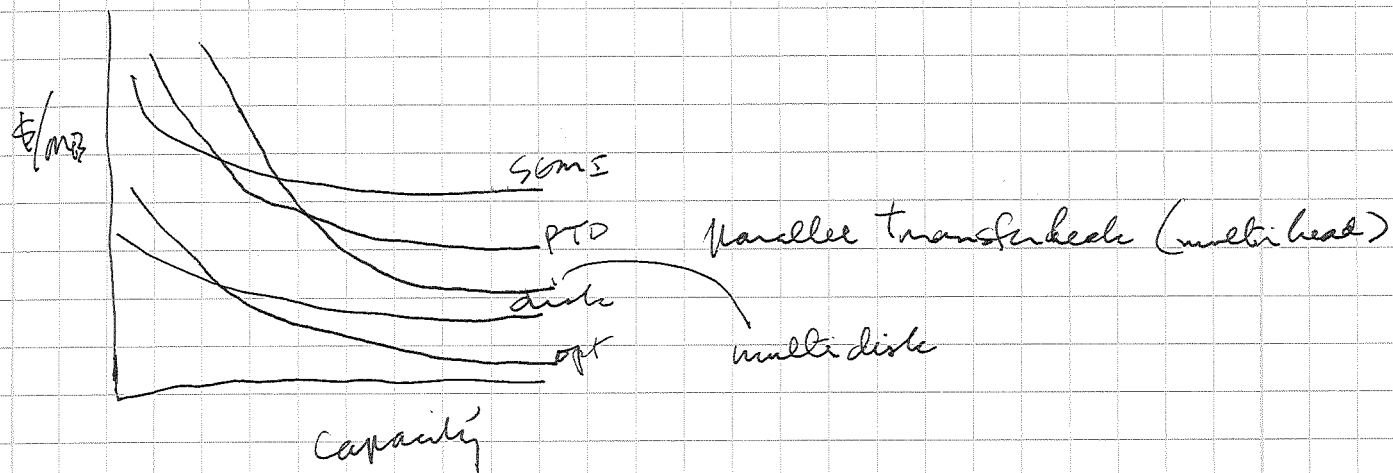 $/MB
SEMI
PTD parallel transfer disk (multi head)
disk
opt multi disk
capacity